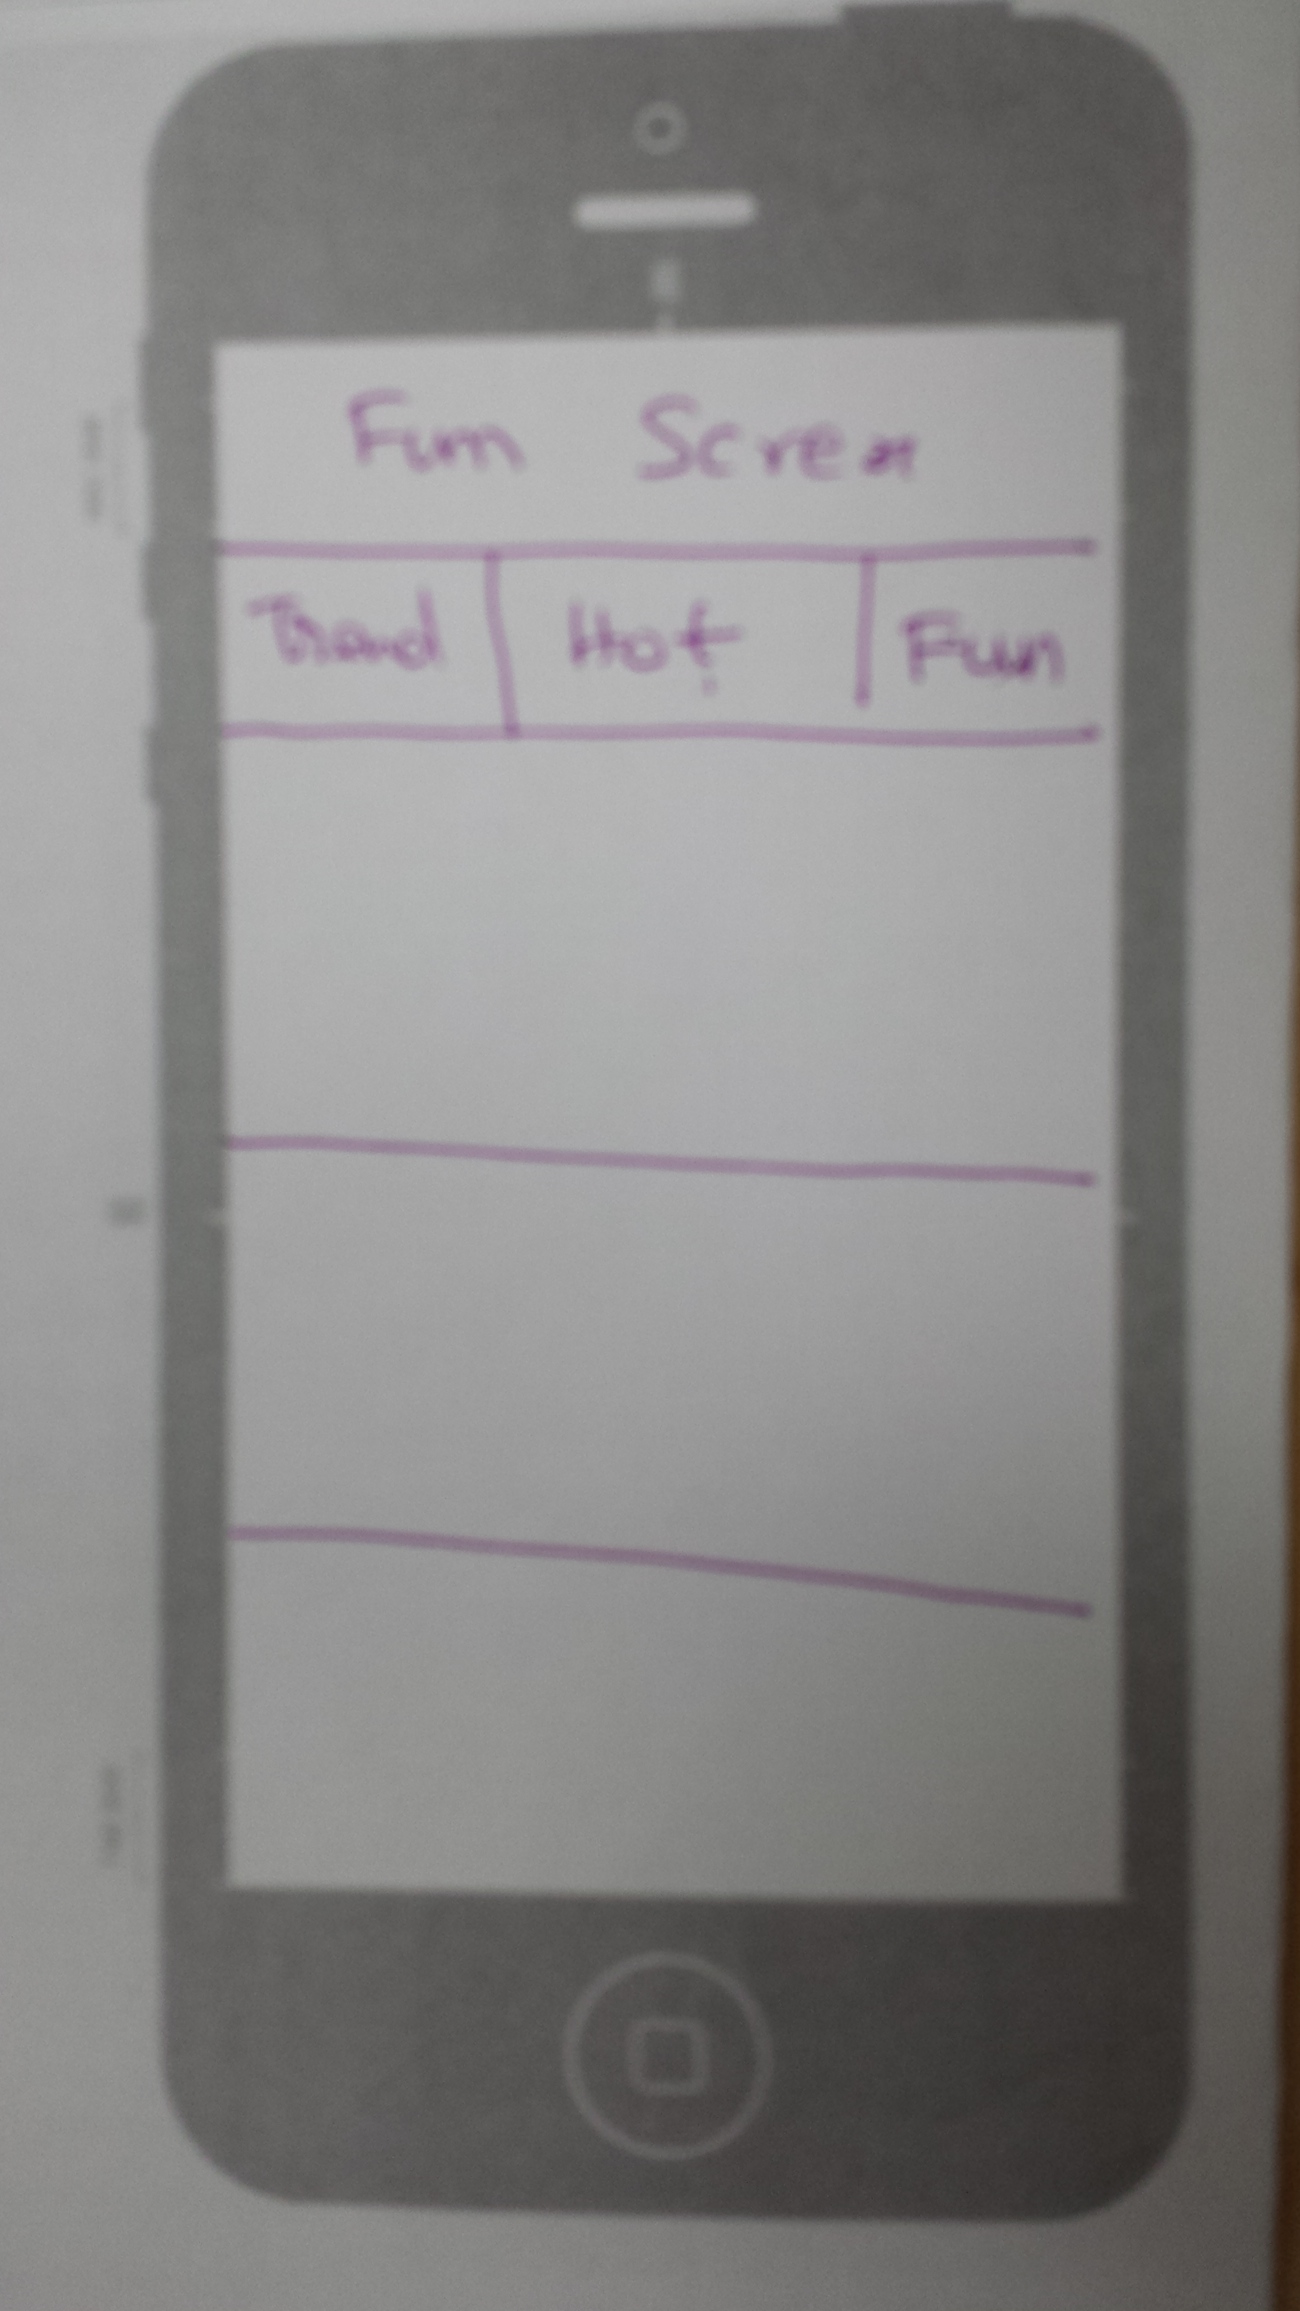 Fun Screen
Trand Hot Fun